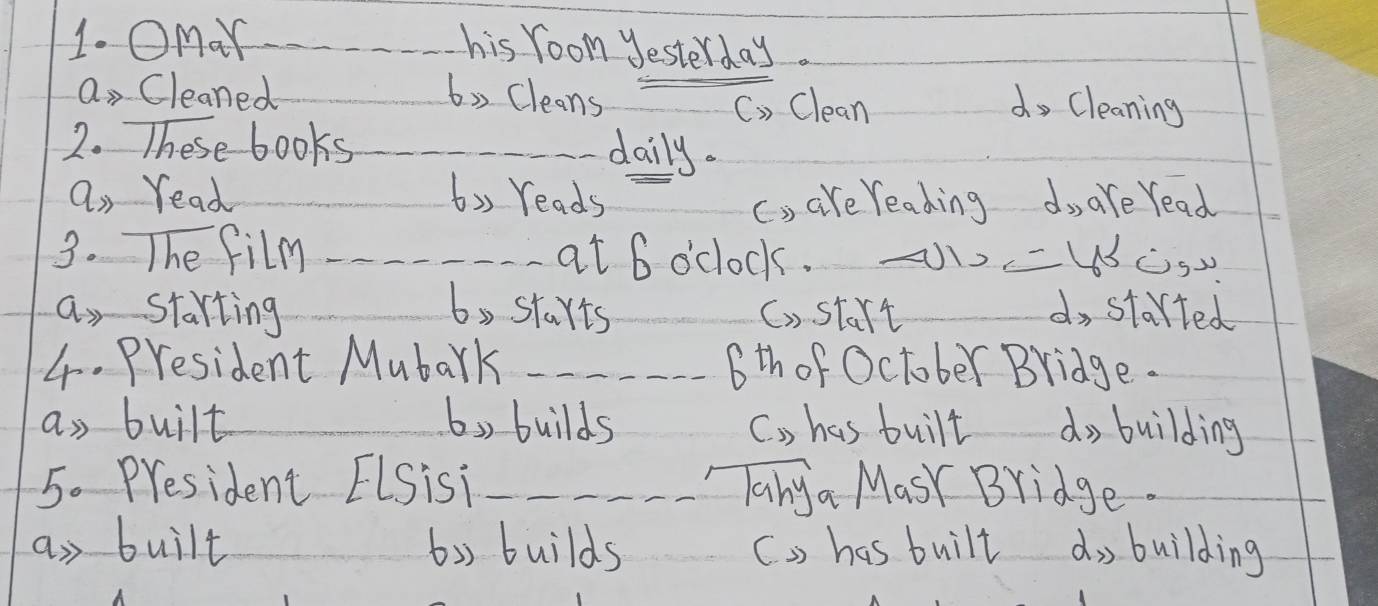 1. Omar ---------- his room yesterday.
a» Cleaned b» Cleans C» Clean d» Cleaning
2. These books ---------- daily.
a» read b» reads C» are reading d» are read
3. The film --------- at 6 o'clock.
a» starting b» starts C» start d» started
4. President Mubark ------- 6th of October Bridge.
a» built b» builds C» has built d» building
5. President ElSisi ------ Tahya Masr Bridge.
a» built b» builds C» has built d» building